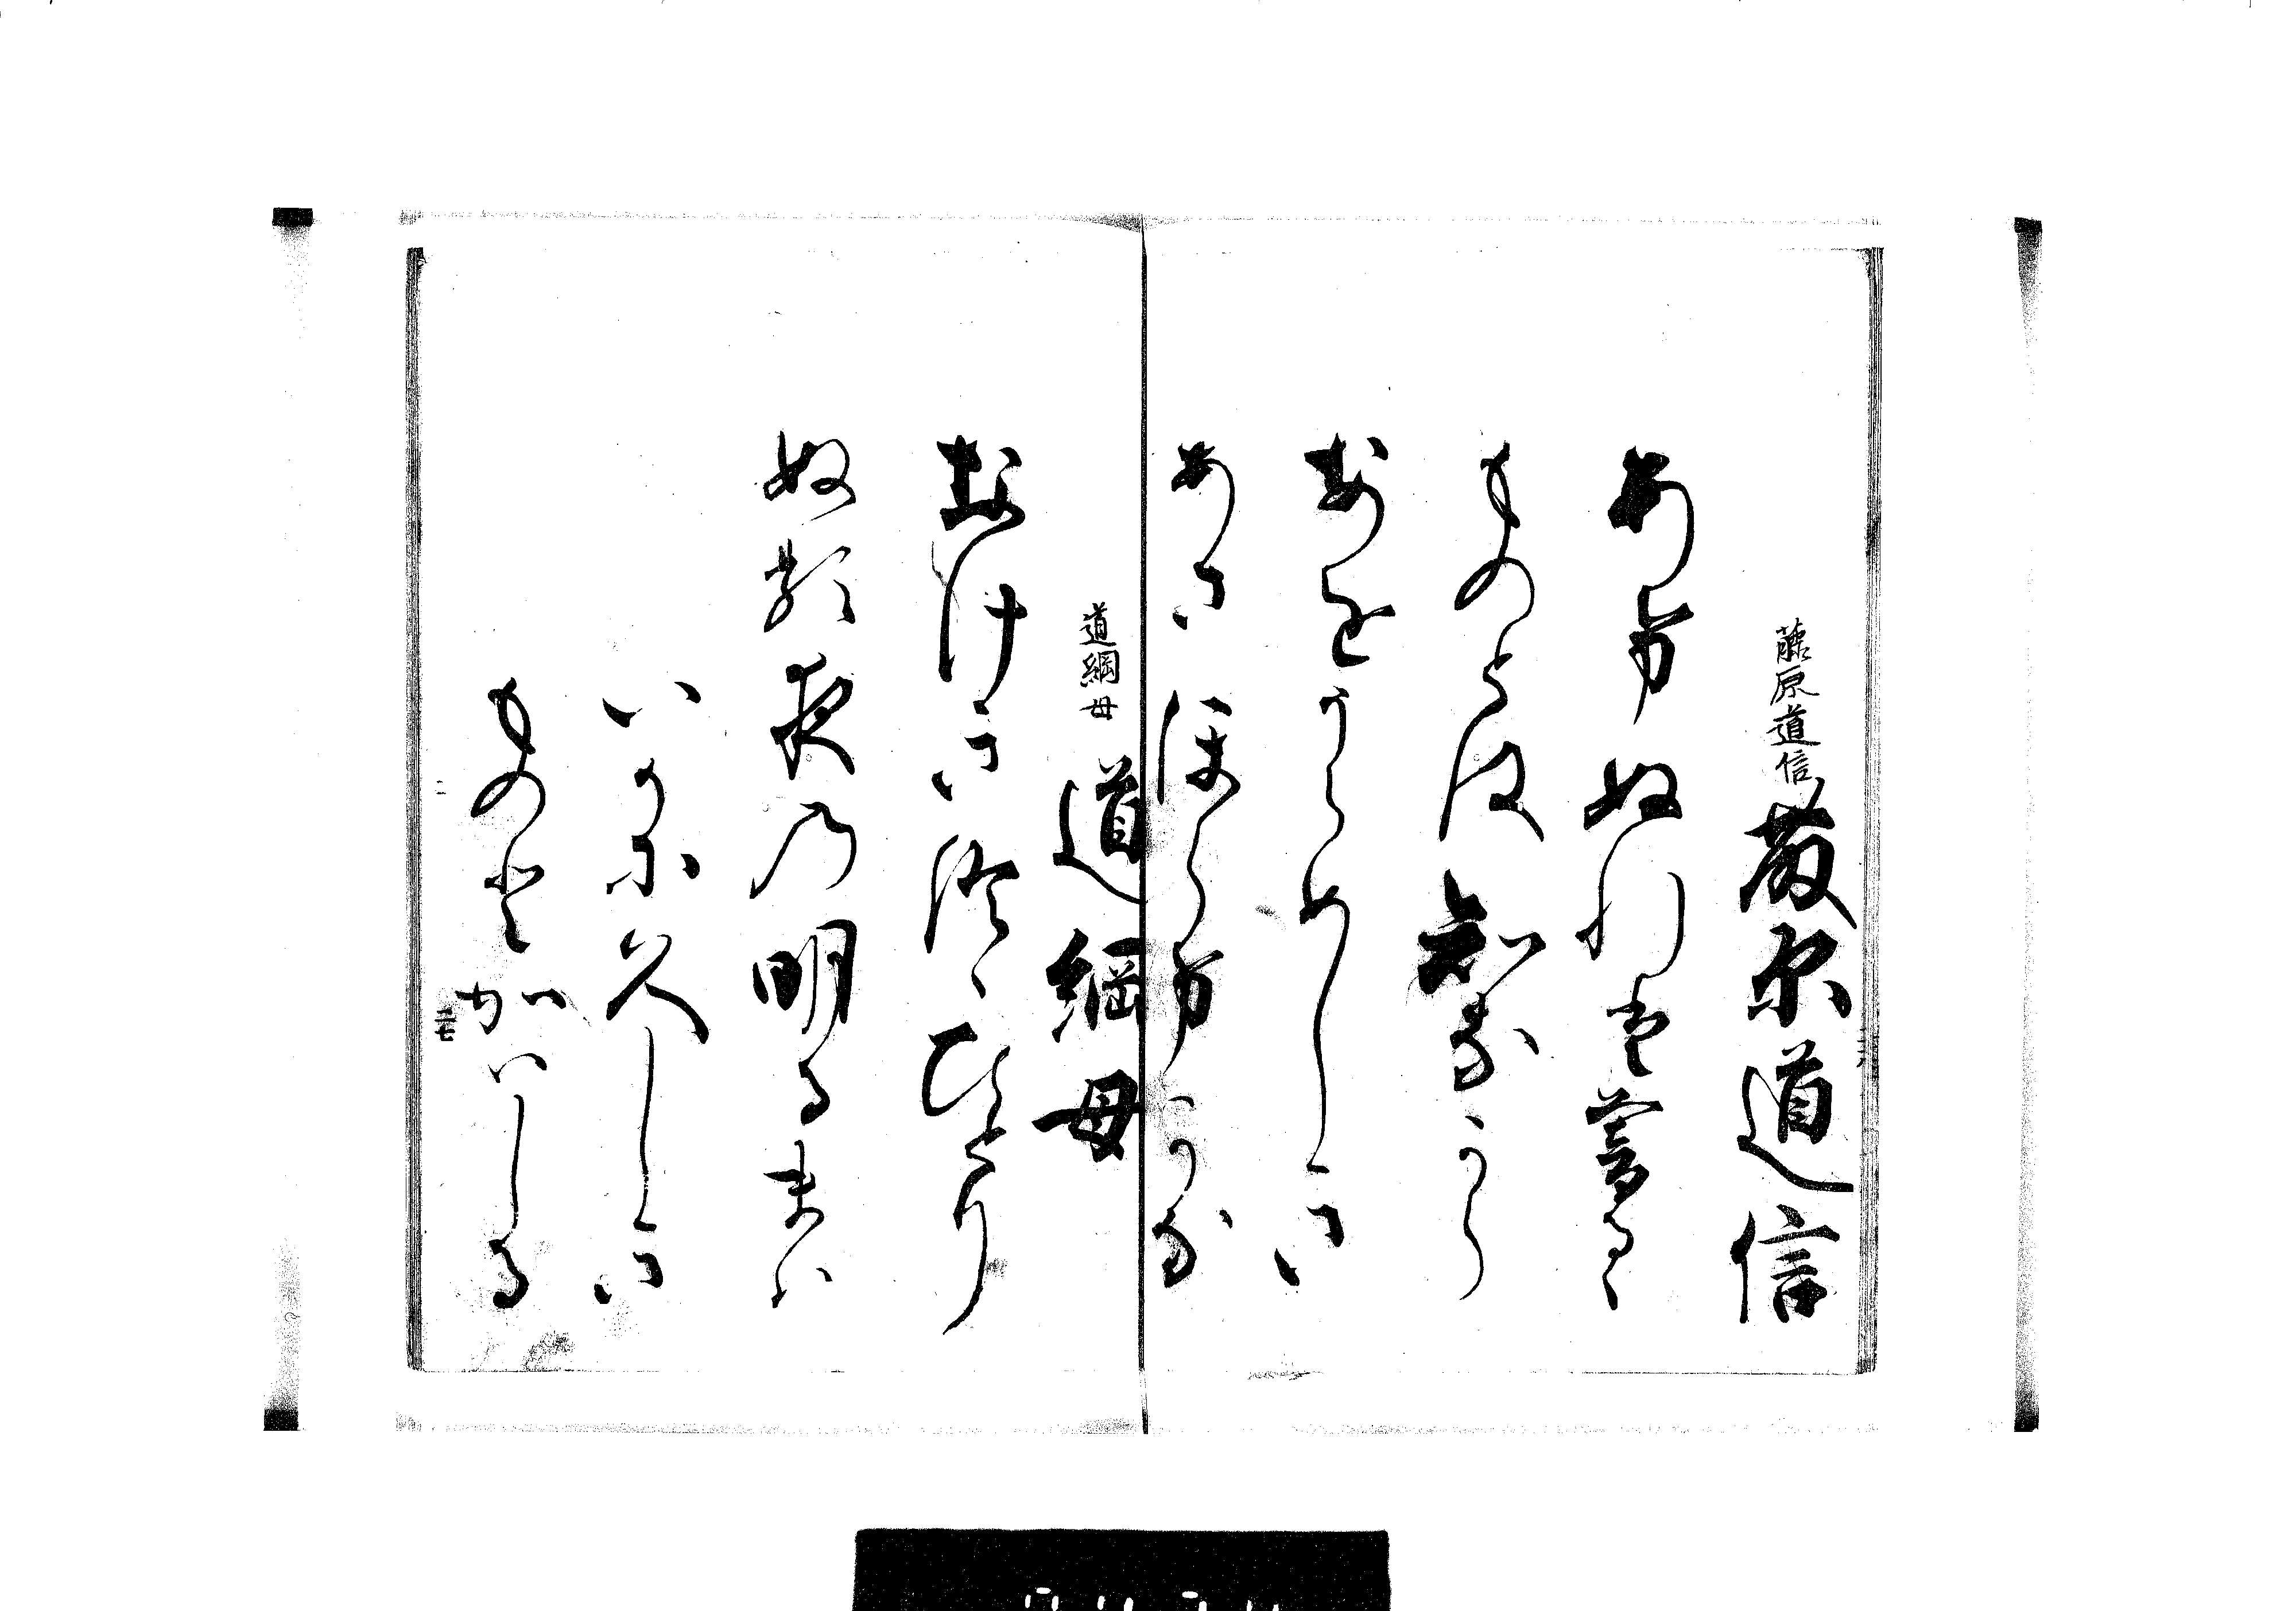 藤原道信
藤原道信
あけぬれは暮るゝ
ものとは知なから
なをうらめしき
あさほらけかな
道綱母
道綱母
なけきつゝひとり
ぬる夜の明るまは
いかに久しき
ものとかはしる